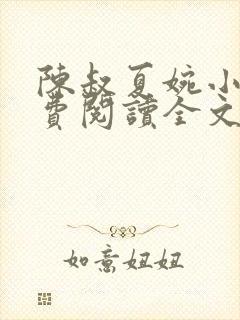 陳叔夏婉小
費閱讀全文
如意妞妞